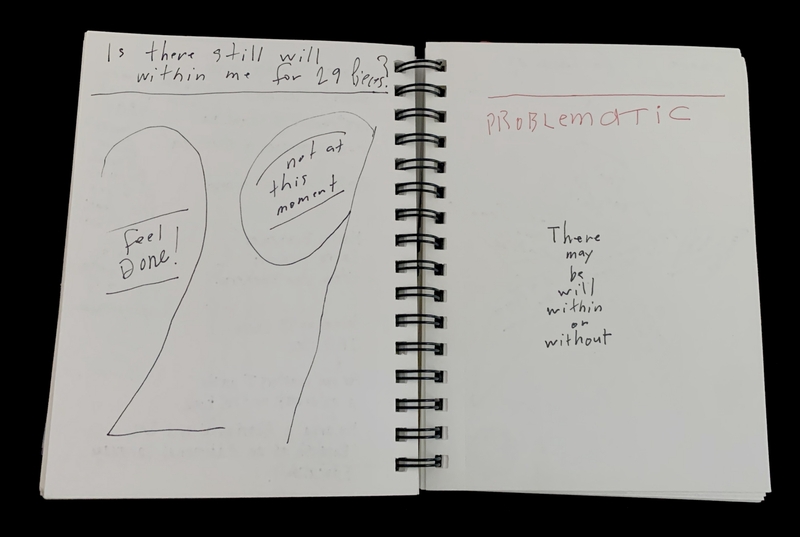 Is there still will
within me for 29 pieces?
Feel
Done!
not at
this
moment
29
PROBLEMATIC
There
may
be
will
within
or
without